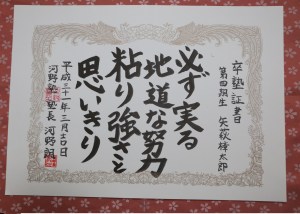 卒塾証書
第四期生 矢萩椿太郎
必ず実る
地道な努力
粘り強さと
思いきり
平成三十一年三月吉日
河野塾塾長 河野颯